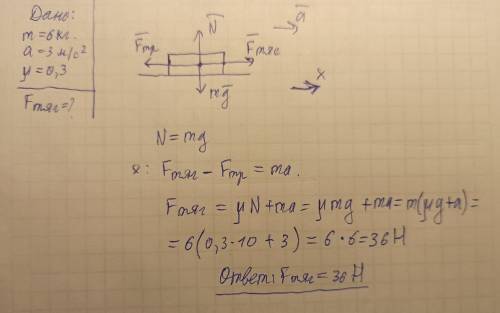 Дано:
m = 6 кг.
a = 3 м/с²
μ = 0,3
Fтяг = ?
N
a
Fтр
Fтяг
x
mg
N = mg
x: Fтяг - Fтр = ma.
Fтяг = μN + ma = μmg + ma = m(μg + a) =
= 6(0,3·10 + 3) = 6·6 = 36 Н
Ответ: Fтяг = 36 Н